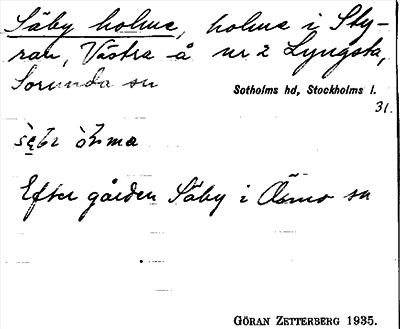 Säby holme, holme i Sty-
ran, Västra å nr 2 Lyngsta,
Sorunda sn
Sotholms hd, Stockholms l.
31.
Efter gården Säby i Ösmo sn
GÖRAN ZETTERBERG 1935.